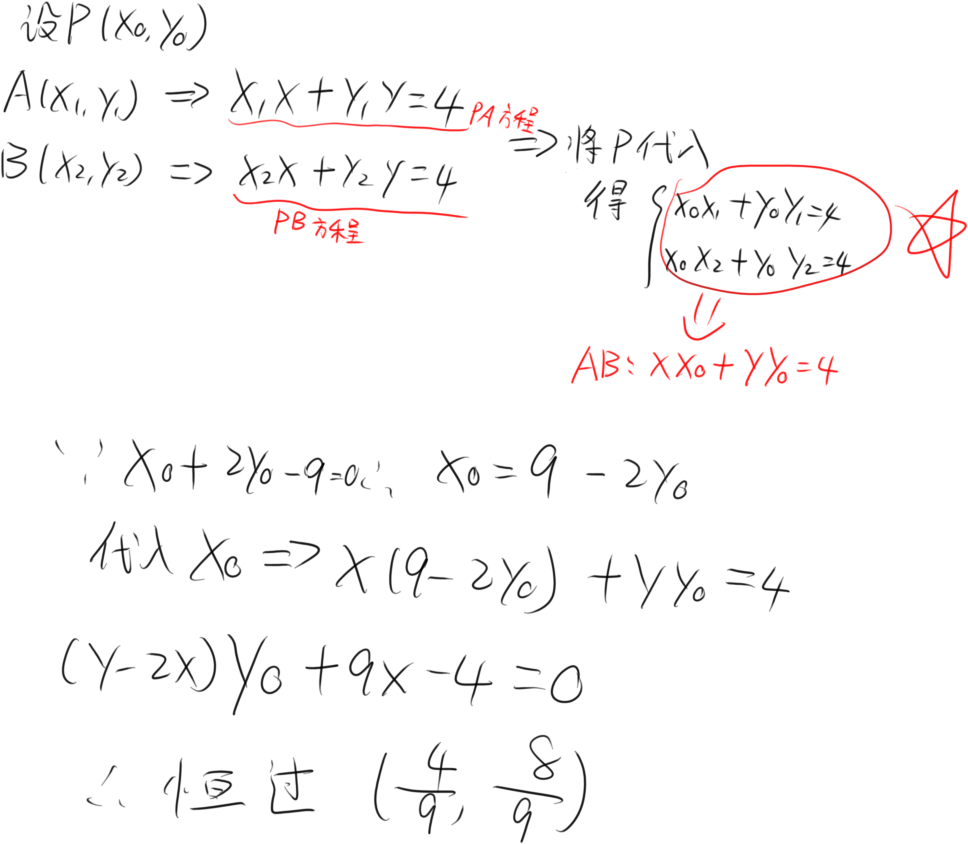 设P(x₀,y₀)
A(x₁,y₁) ⇒ x₁x+y₁y=4 PA方程
B(x₂,y₂) ⇒ x₂x+y₂y=4
PB方程
⇒将P代入
得{x₀x₁+y₀y₁=4
x₀x₂+y₀y₂=4
AB: xx₀+yy₀=4
∵x₀+2y₀-9=0∴ x₀=9-2y₀
代入x₀⇒x(9-2y₀)+yy₀=4
(y-2x)y₀+9x-4=0
∴恒过(4/9, 8/9)